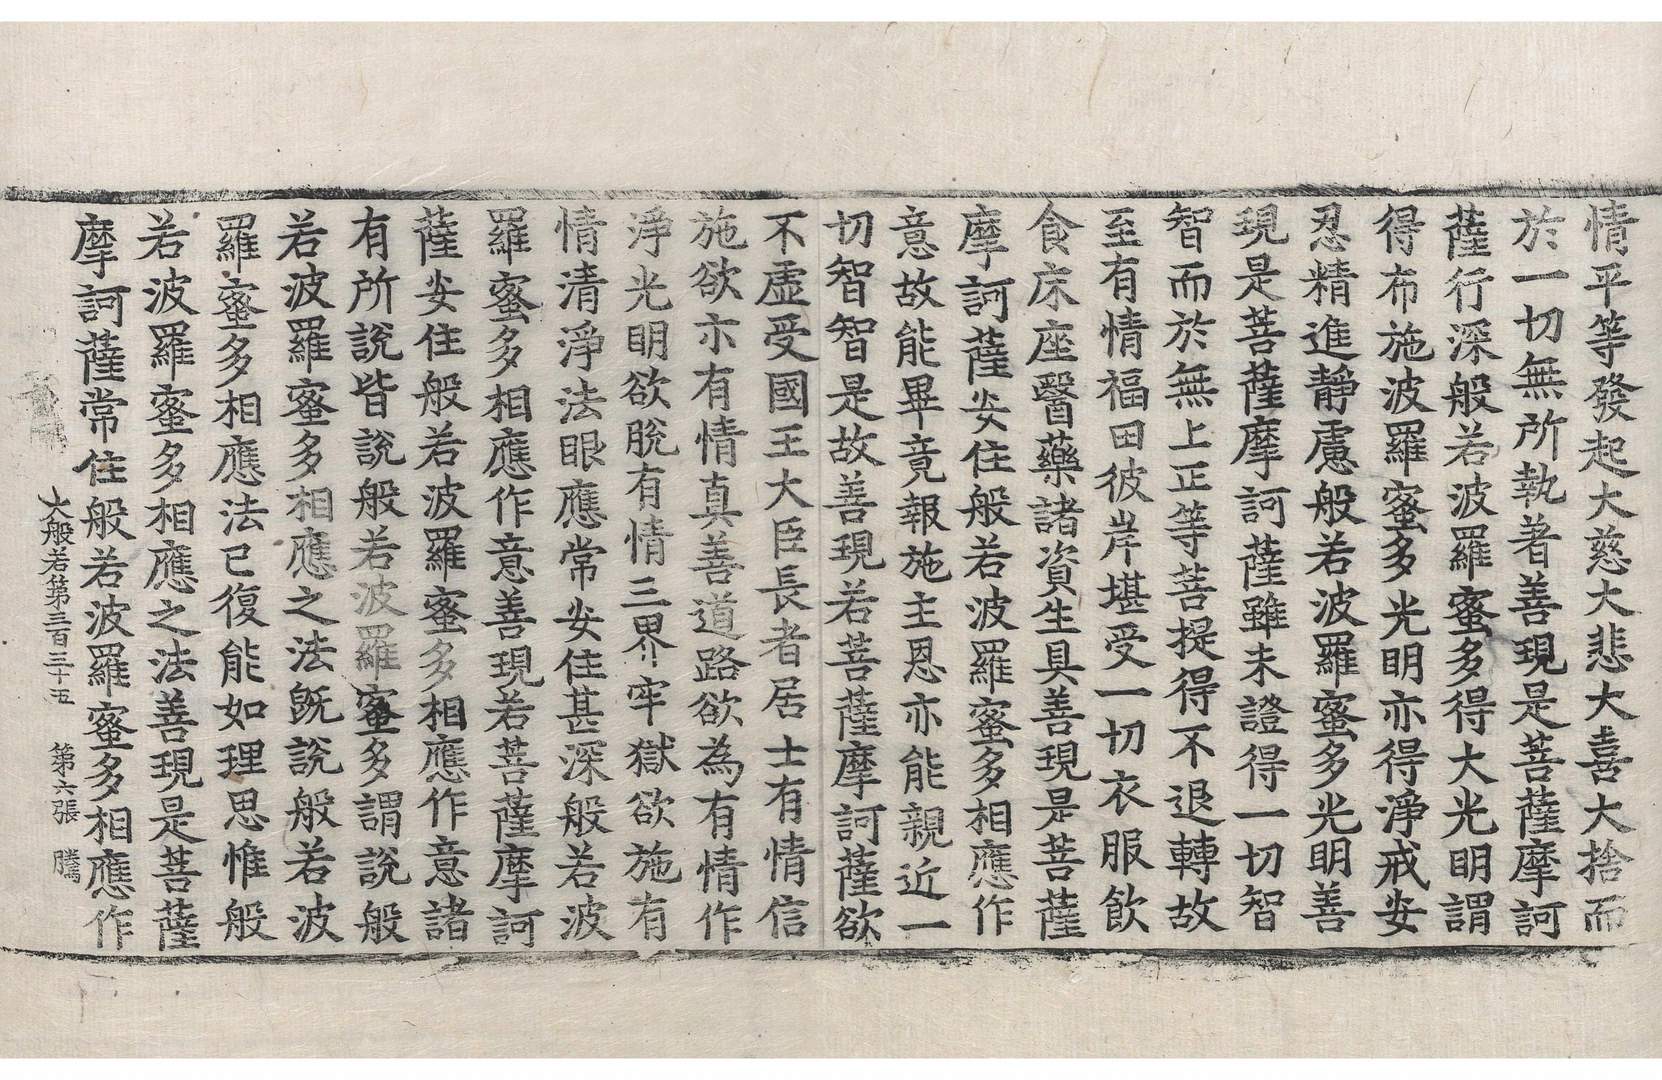 情平等發起大慈大悲大喜大捨而
於一切無所執著善現是菩薩摩訶
薩行深般若波羅蜜多得大光明謂
得布施波羅蜜多光明亦得淨戒安
忍精進靜慮般若波羅蜜多光明善
現是菩薩摩訶薩雖未證得一切智
智而於無上正等菩提得不退轉故
至有情福田彼岸堪受一切衣服飲
食床座醫藥諸資生具善現是菩薩
摩訶薩安住般若波羅蜜多相應作
意故能畢竟報施主恩亦能親近一
切智智是故善現若菩薩摩訶薩欲
不虛受國王大臣長者居士有情信
施欲示有情真善道路欲為有情作
淨光明欲脫有情三界牢獄欲施有
情清淨法眼應常安住甚深般若波
羅蜜多相應作意善現若菩薩摩訶
薩安住般若波羅蜜多相應作意諸
有所說皆說般若波羅蜜多謂說般
若波羅蜜多相應之法既說般若波
羅蜜多相應法已復能如理思惟般
若波羅蜜多相應之法善現是菩薩
摩訶薩常住般若波羅蜜多相應作
大般若第三百三十五 第六張 騰